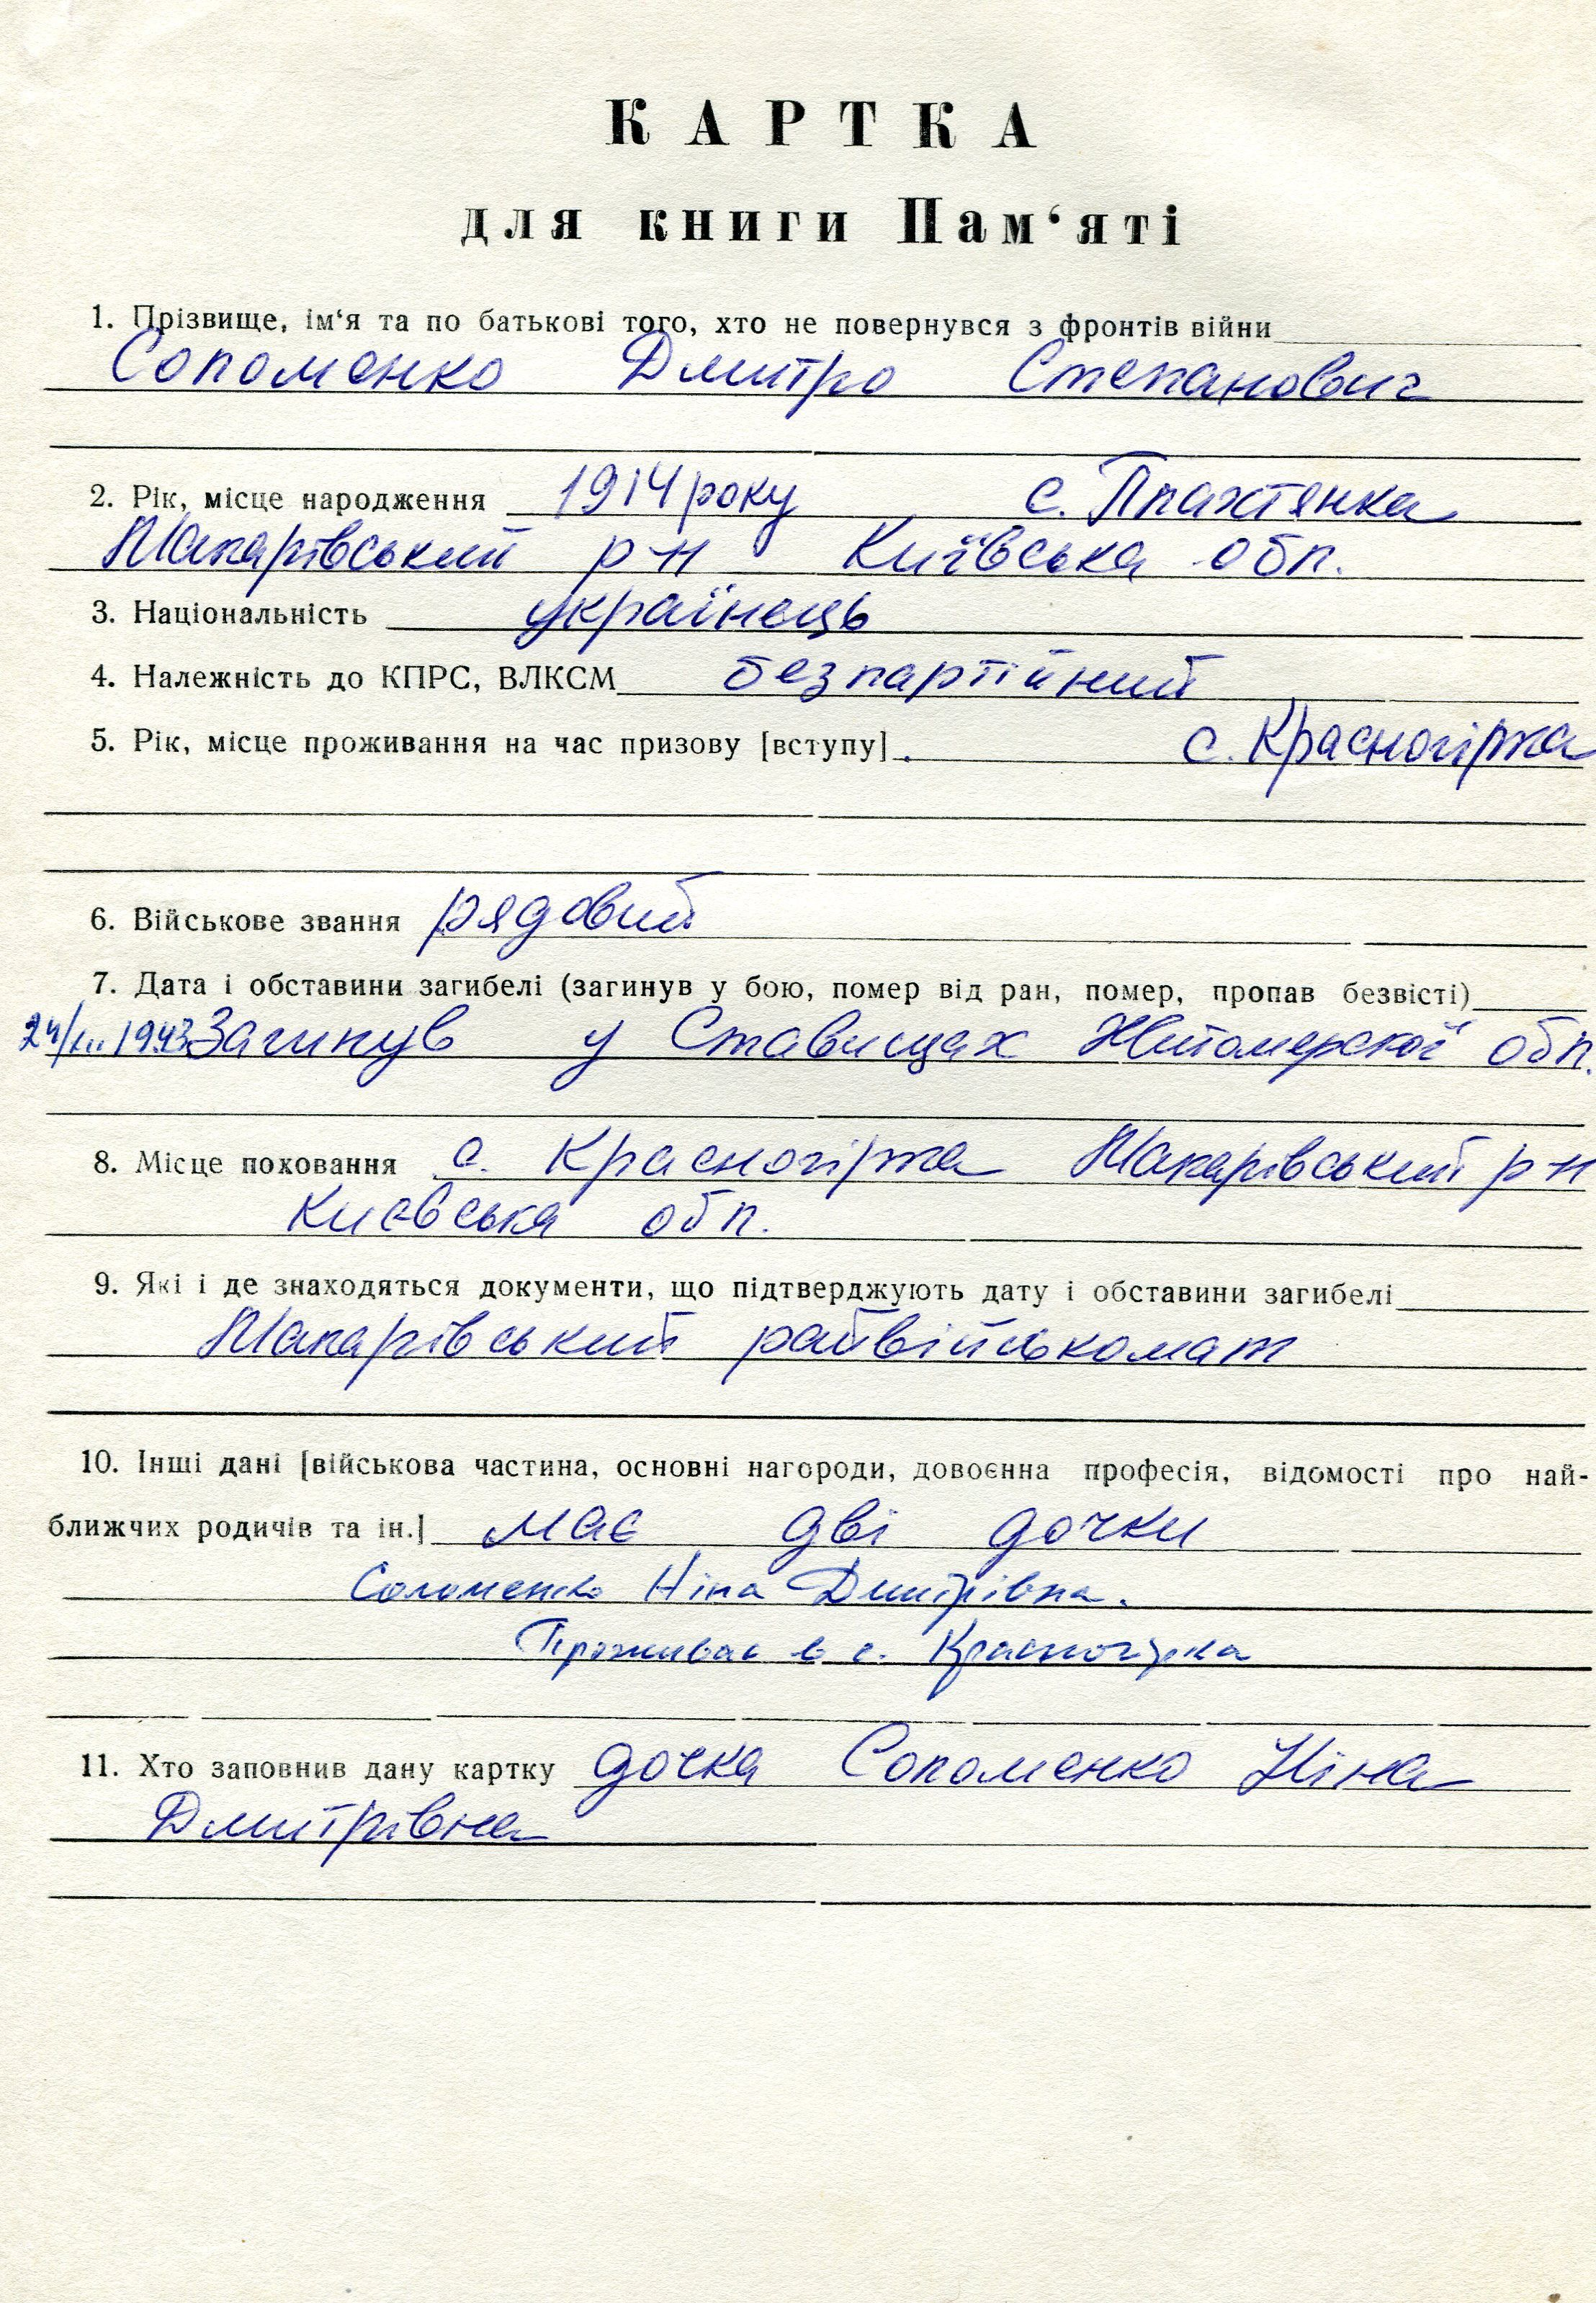 КАРТКА
для книги Пам‘яті
1. Прізвище, ім‘я та по батькові того, хто не повернувся з фронтів війни
Соломенко Дмитро Степанович
2. Рік, місце народження 1914 року с. Плахтянка
Макарівський р-н Київська обл.
3. Національність українець
4. Належність до КПРС, ВЛКСМ безпартійний
5. Рік, місце проживання на час призову [вступу]. с. Красногірка
6. Військове звання рядовий
7. Дата і обставини загибелі (загинув у бою, помер від ран, помер, пропав безвісті)
1943 Загинув у Ставищах Житомерської обл.
8. Місце поховання с. Красногірка Макарівський р-н
Києвська обл.
9. Які і де знаходяться документи, що підтверджують дату і обставини загибелі
Макарівський райвійськомат
10. Інші дані [військова частина, основні нагороди, довоєнна професія, відомості про най-
ближчих родичів та ін.] має дві дочки
Соломенко Ніна Дмитрівна.
Проживає в с. Красногірка
11. Хто заповнив дану картку дочка Соломенко Ніна
Дмитрівна